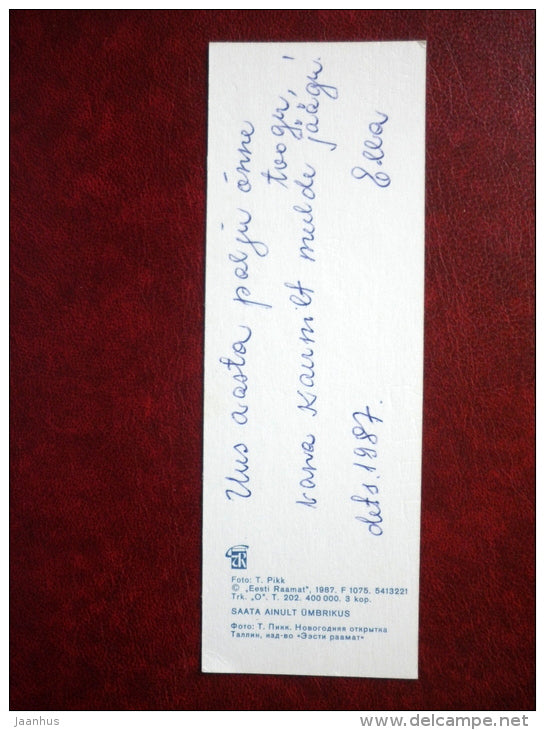 Uus aasta palju õnne
toogu,
vana kaunilt meelde jäägu!
Ella
dets. 1987.
Foto: T. Pikk
© „Eesti Raamat", 1987. F 1075. 5413221
Trk. „O". T. 202. 400 000. 3 kop.
SAATA AINULT ÜMBRIKUS
Фото: Т. Пикк. Новогодняя открытка
Таллин, изд-во «Ээсти раамат»
Jaanhus
delcampe.net